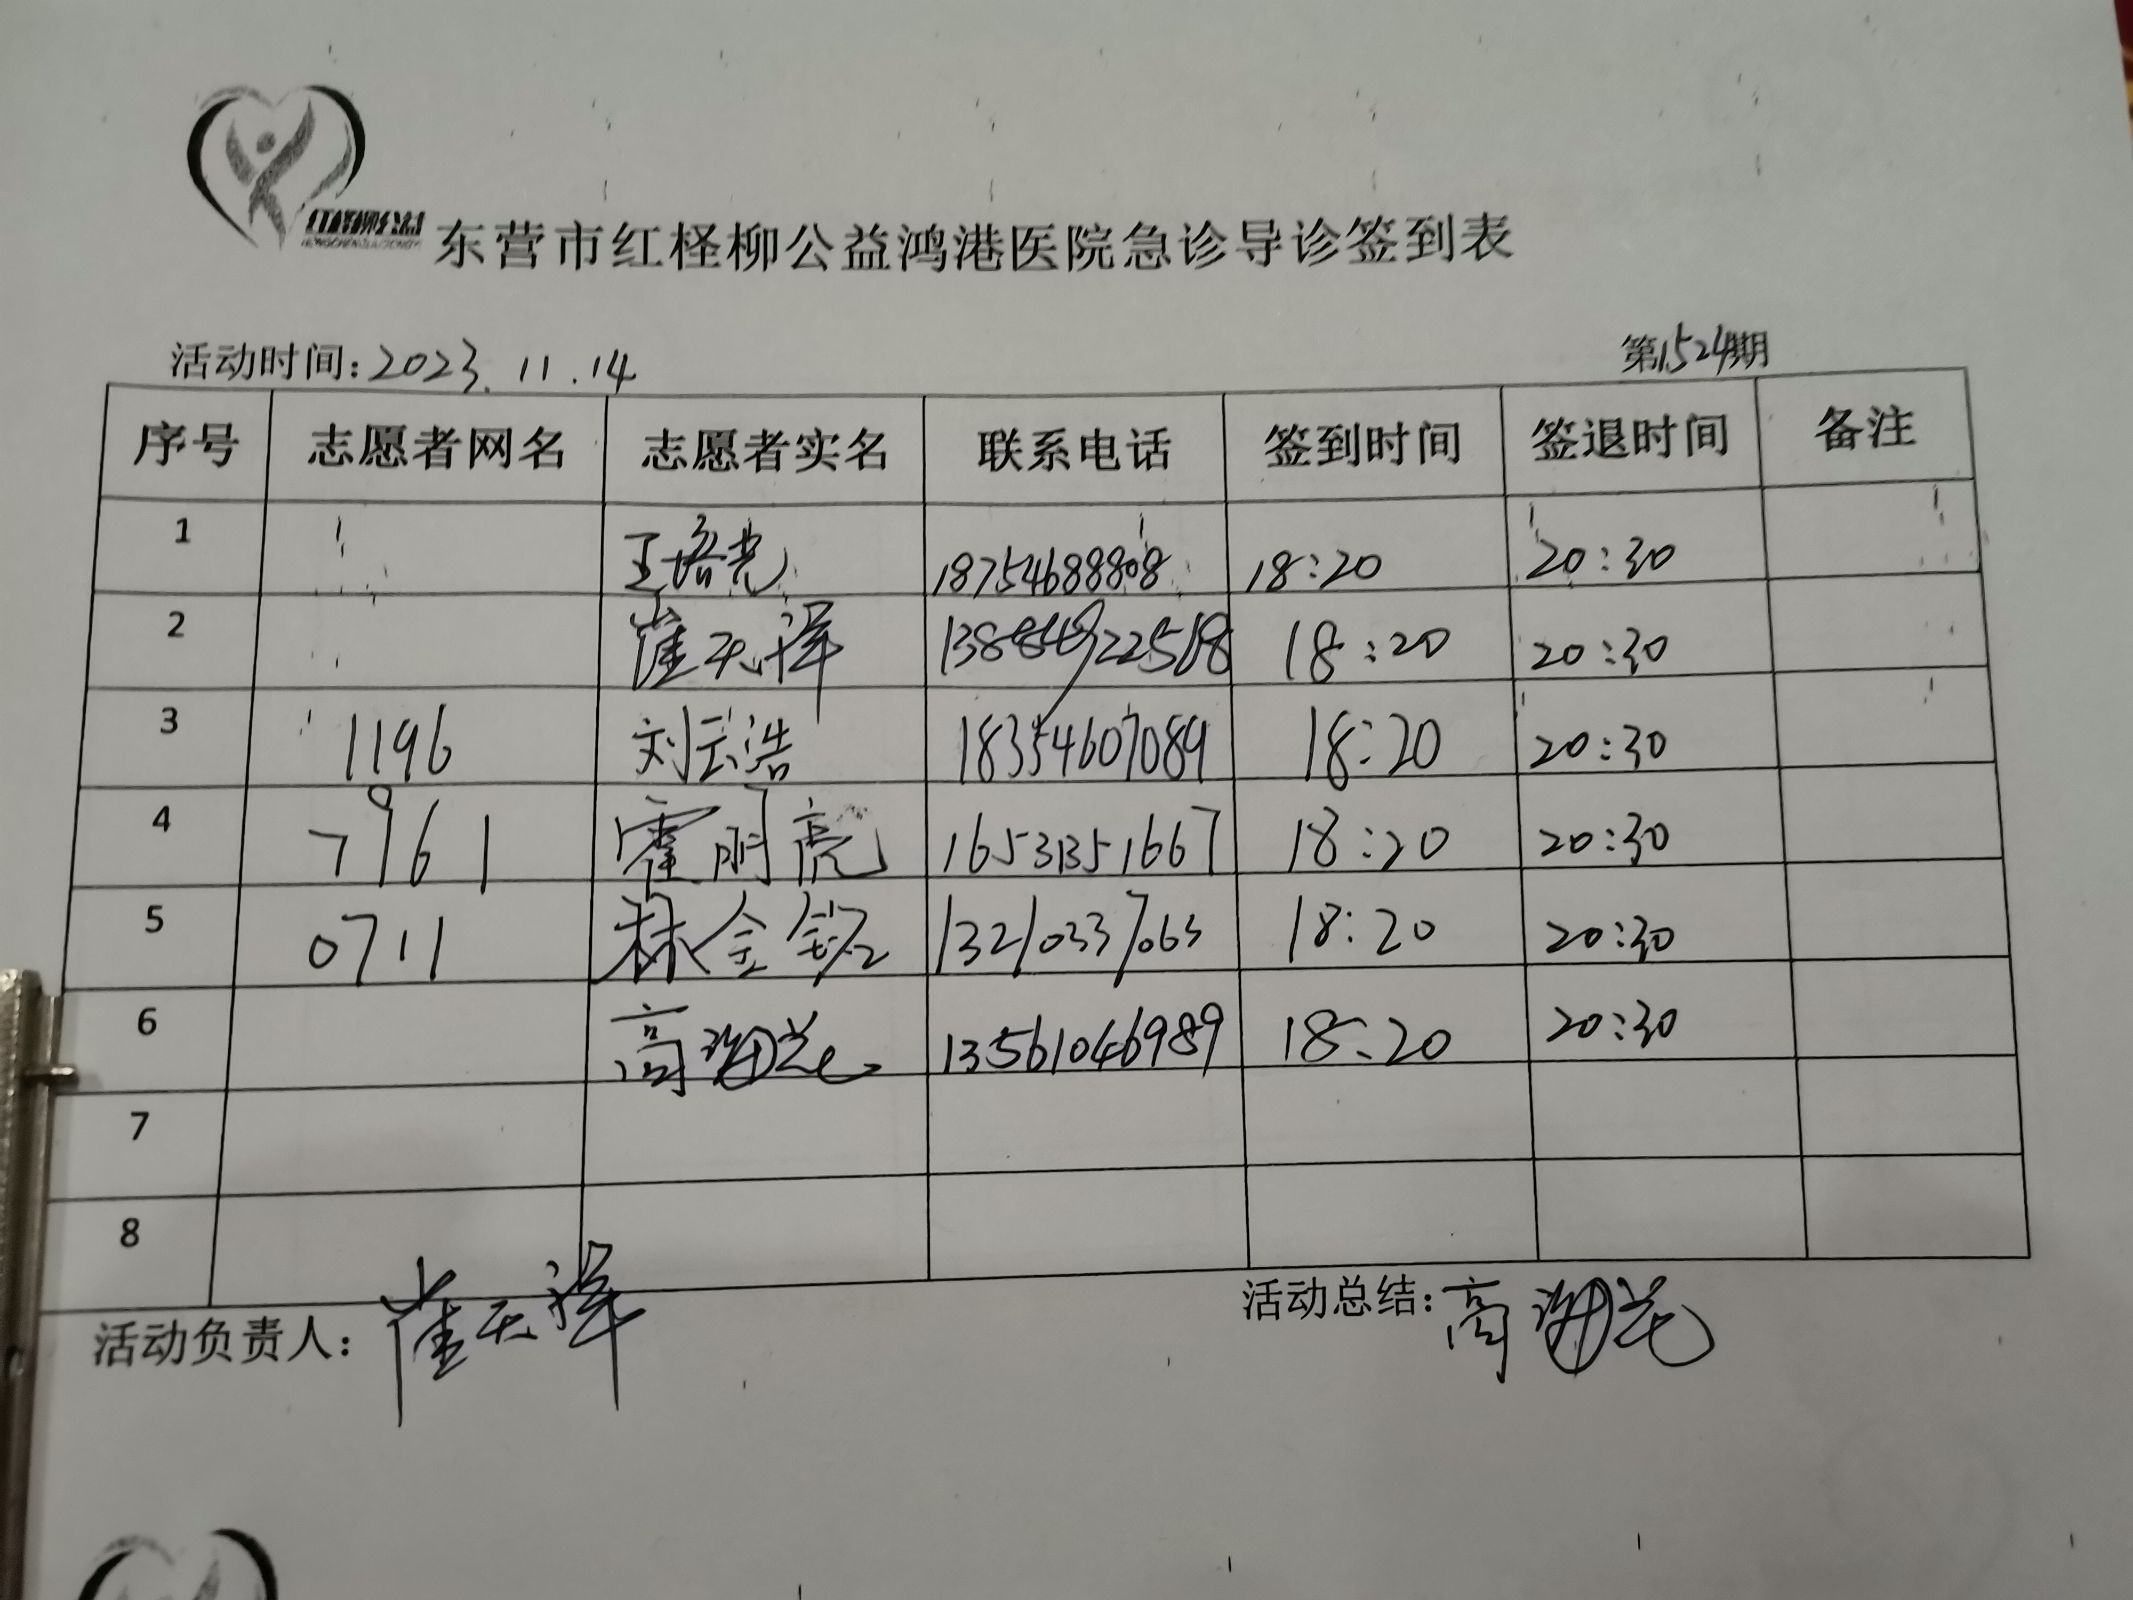 红柽柳公益
东营市红柽柳公益鸿港医院急诊导诊签到表
活动时间:2023.11.14 第1524期
序号 志愿者网名 志愿者实名 联系电话 签到时间 签退时间 备注
1 王培光 18754688808 18:20 20:30
2 崔天泽 18:20 20:30
3 1196 刘云浩 18354607089 18:20 20:30
4 7961 霍明亮 16531351667 18:20 20:30
5 0711 林金钗 13210337063 18:20 20:30
6 高 花 13561046989 18:20 20:30
7
8
活动负责人:崔天泽 活动总结:高 花